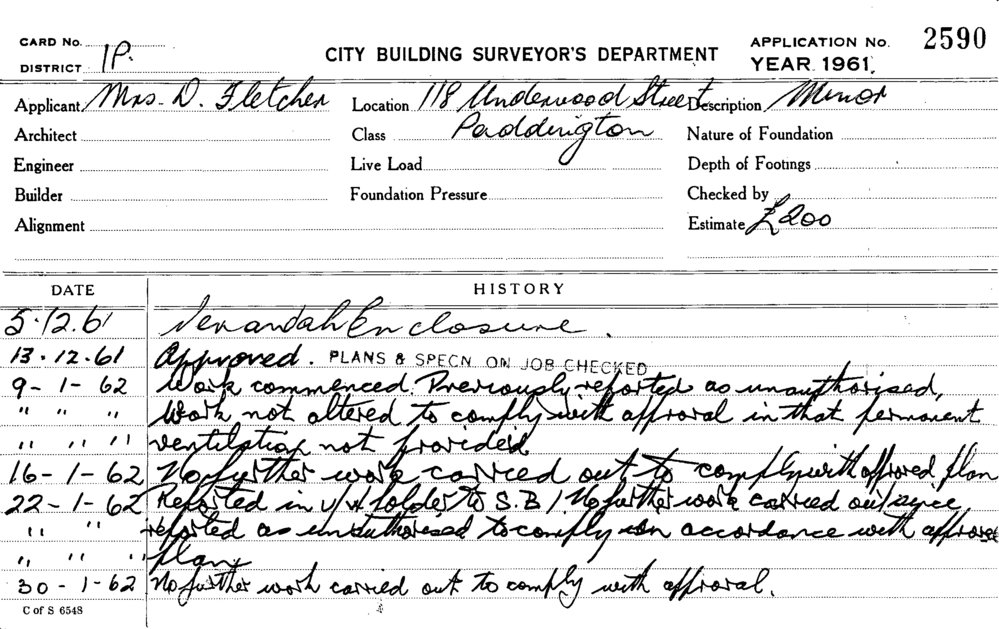 CARD No.
DISTRICT 1P.
CITY BUILDING SURVEYOR'S DEPARTMENT
APPLICATION No. 2590
YEAR 1961.
Applicant Mrs. D. Fletcher Location 118 Underwood Street Description Minor
Architect Class Paddington Nature of Foundation
Engineer Live Load Depth of Footings
Builder Foundation Pressure Checked by
Alignment Estimate £200
DATE HISTORY
5.12.61 Verandah Enclosure.
13.12.61 Approved. PLANS & SPECN. ON JOB CHECKED
9-1-62 Work commenced. Previously reported as unauthorised,
" " " Work not altered to comply with approval in that permanent
" " " ventilation not provided
16-1-62 No further work carried out to comply with approved plan
22-1-62 Reported in folder to S.B. No further work carried out since
" " reported as unauthorised to comply in accordance with approved
" " " plan
30-1-62 No further work carried out to comply with approval.
C of S 6548